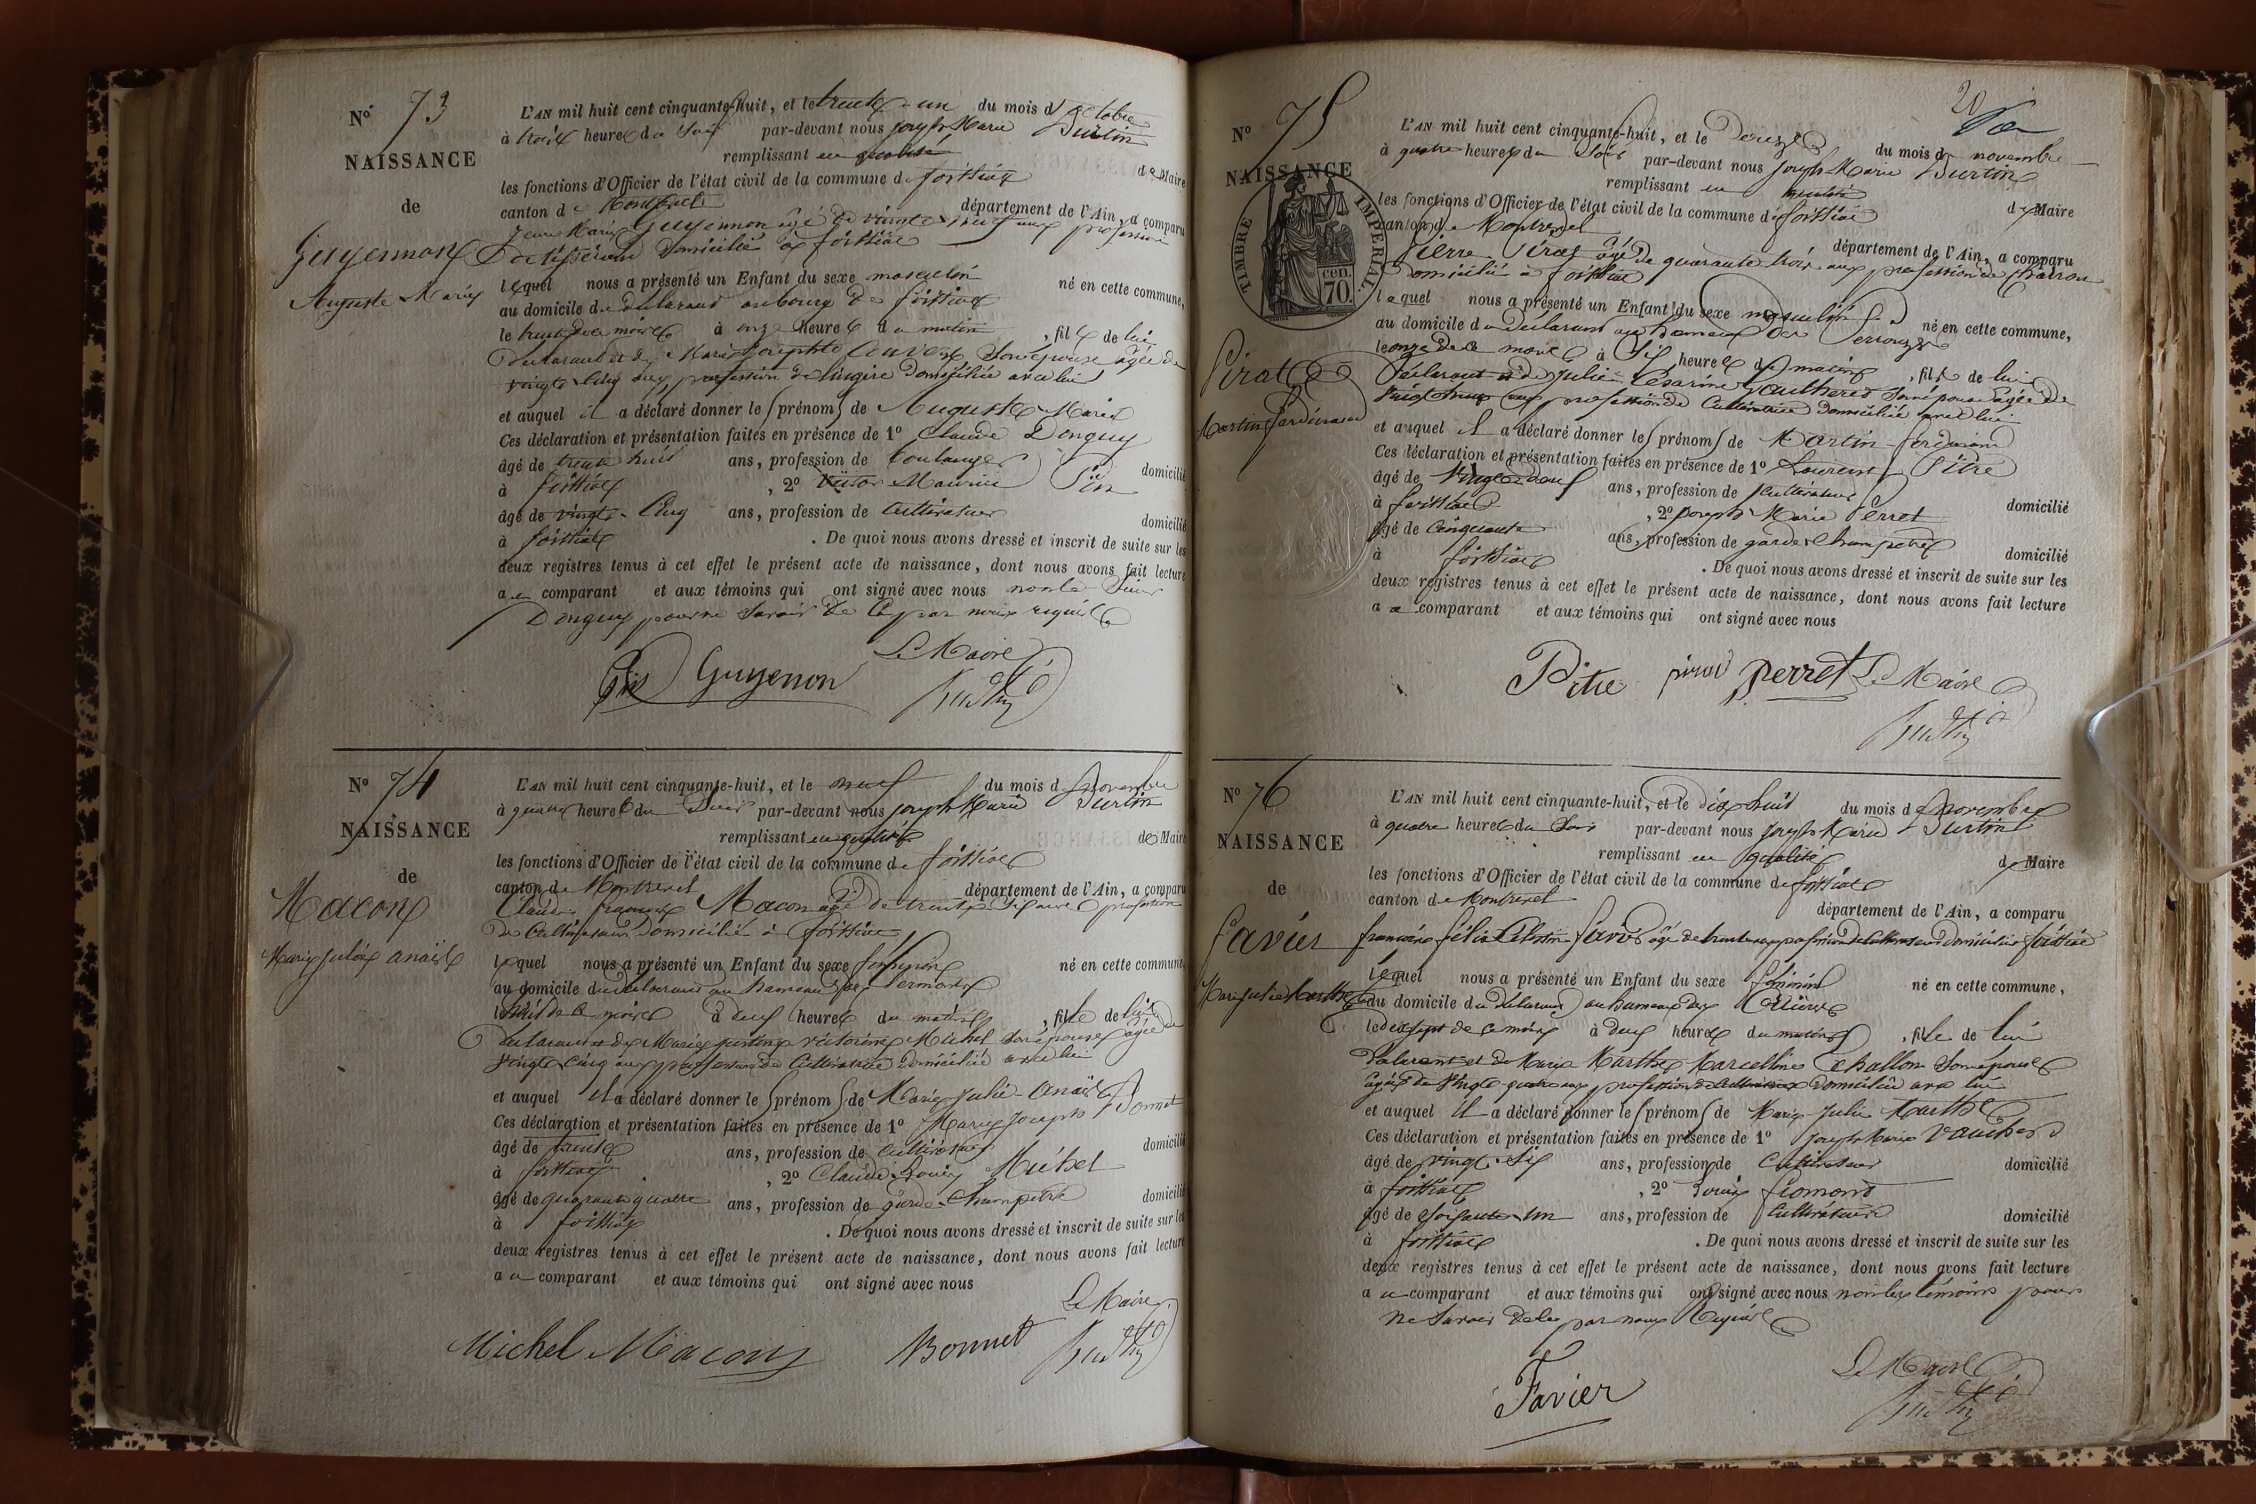 No 73
NAISSANCE
de
Guyennon
Auguste Marie
L'AN mil huit cent cinquante-huit, et le trente-un du mois d'octobre
à trois heures du soir par-devant nous joseph Marie Burtin
remplissant en qualité de Maire
les fonctions d'Officier de l'état civil de la commune de foissiat
canton de Montrevel département de l'Ain, a comparu
Jean Marie Guyennon âgé de vingt neuf ans profession
de tisserand domicilié à foissiat
lequel nous a présenté un Enfant du sexe masculin né en cette commune,
au domicile du déclarant au bourg de foissiat
le trente de ce mois à onze heures du matin, fils de lui
déclarant et de Marie Josephte Convert son épouse âgée de
vingt cinq ans profession de lingère domiciliée avec lui
et auquel il a déclaré donner les prénoms de Auguste Marie
Ces déclaration et présentation faites en présence de 1o Claude Donguy
âgé de trente huit ans, profession de boulanger domicilié
à foissiat, 2o Victor Maurice Pin
âgé de vingt-cinq ans, profession de cultivateur domicilié
à foissiat. De quoi nous avons dressé et inscrit de suite sur les
deux registres tenus à cet effet le présent acte de naissance, dont nous avons fait lecture
au comparant et aux témoins qui ont signé avec nous non le sieur
Donguy pour ne savoir de ce par nous requis
Le Maire
Pin Guyenon Burtin
No 74
NAISSANCE
de
Macon
Marie Julie anaïs
L'AN mil huit cent cinquante-huit, et le neuf du mois de novembre
à quatre heures du soir par-devant nous joseph Marie Burtin
remplissant en qualité de Maire
les fonctions d'Officier de l'état civil de la commune de foissiat
canton de Montrevel département de l'Ain, a comparu
Claude françois Macon âgé de trente six ans profession
de cultivateur domicilié à foissiat
lequel nous a présenté un Enfant du sexe féminin né en cette commune,
au domicile du déclarant au hameau de
le huit de ce mois à deux heures du matin, fille de lui
déclarant et de Marie justine victorine Michel son épouse âgée de
vingt cinq ans profession de cultivatrice domiciliée avec lui
et auquel il a déclaré donner les prénoms de Marie Julie-anaïs
Ces déclaration et présentation faites en présence de 1o Marie Joseph Bonnet
âgé de trente ans, profession de cultivateur domicilié
à foissiat, 2o Claude Louis Michel
âgé de quarante quatre ans, profession de garde-champêtre domicilié
à foissiat. De quoi nous avons dressé et inscrit de suite sur les
deux registres tenus à cet effet le présent acte de naissance, dont nous avons fait lecture
au comparant et aux témoins qui ont signé avec nous
Le Maire
Michel Macon Bonnet Burtin
20
No 75
NAISSANCE
TIMBRE IMPERIAL
70 cen.
Pirat
Martin ferdinand
L'AN mil huit cent cinquante-huit, et le douze du mois de novembre
à quatre heures du soir par-devant nous joseph Marie Burtin
remplissant en qualité de Maire
les fonctions d'Officier de l'état civil de la commune de foissiat
canton de Montrevel département de l'Ain, a comparu
Pierre Pirat âgé de quarante trois ans profession de charron
domicilié à foissiat
lequel nous a présenté un Enfant du sexe masculin né en cette commune,
au domicile du déclarant au hameau des
le onze de ce mois à six heures du matin, fils de lui
déclarant et de Julie Césarine Vautheret son épouse âgée de
profession de cultivatrice domiciliée avec lui
et auquel il a déclaré donner les prénoms de Martin-ferdinand
Ces déclaration et présentation faites en présence de 1o Laurent Pitre
âgé de vingt-deux ans, profession de cultivateur domicilié
à foissiat, 2o joseph Marie Perret
âgé de cinquante ans, profession de garde champêtre domicilié
à foissiat. De quoi nous avons dressé et inscrit de suite sur les
deux registres tenus à cet effet le présent acte de naissance, dont nous avons fait lecture
au comparant et aux témoins qui ont signé avec nous
Pitre pirat perret Le Maire
Burtin
No 76
NAISSANCE
de
favier
Marie julie Marthe
L'AN mil huit cent cinquante-huit, et le dix huit du mois de novembre
à quatre heures du soir par-devant nous joseph Marie Burtin
remplissant en qualité de Maire
les fonctions d'Officier de l'état civil de la commune de foissiat
canton de Montrevel département de l'Ain, a comparu
françois félix Célestin favier âgé de trente ans profession de cultivateur domicilié à foissiat
lequel nous a présenté un Enfant du sexe féminin né en cette commune,
au domicile du déclarant au hameau des
le dix sept de ce mois à deux heures du matin, fille de lui
déclarant et de Marie Marthe Marcelline Chaillon son épouse
âgée de vingt-quatre ans profession de cultivatrice domiciliée avec lui
et auquel il a déclaré donner les prénoms de Marie Julie Marthe
Ces déclaration et présentation faites en présence de 1o joseph Marie Vaucher
âgé de vingt-six ans, profession de cultivateur domicilié
à foissiat, 2o Louis fromont
âgé de soixante-un ans, profession de cultivateur domicilié
à foissiat. De quoi nous avons dressé et inscrit de suite sur les
deux registres tenus à cet effet le présent acte de naissance, dont nous avons fait lecture
au comparant et aux témoins qui ont signé avec nous non les témoins pour
ne savoir de ce par nous requis
Le Maire
Favier Burtin